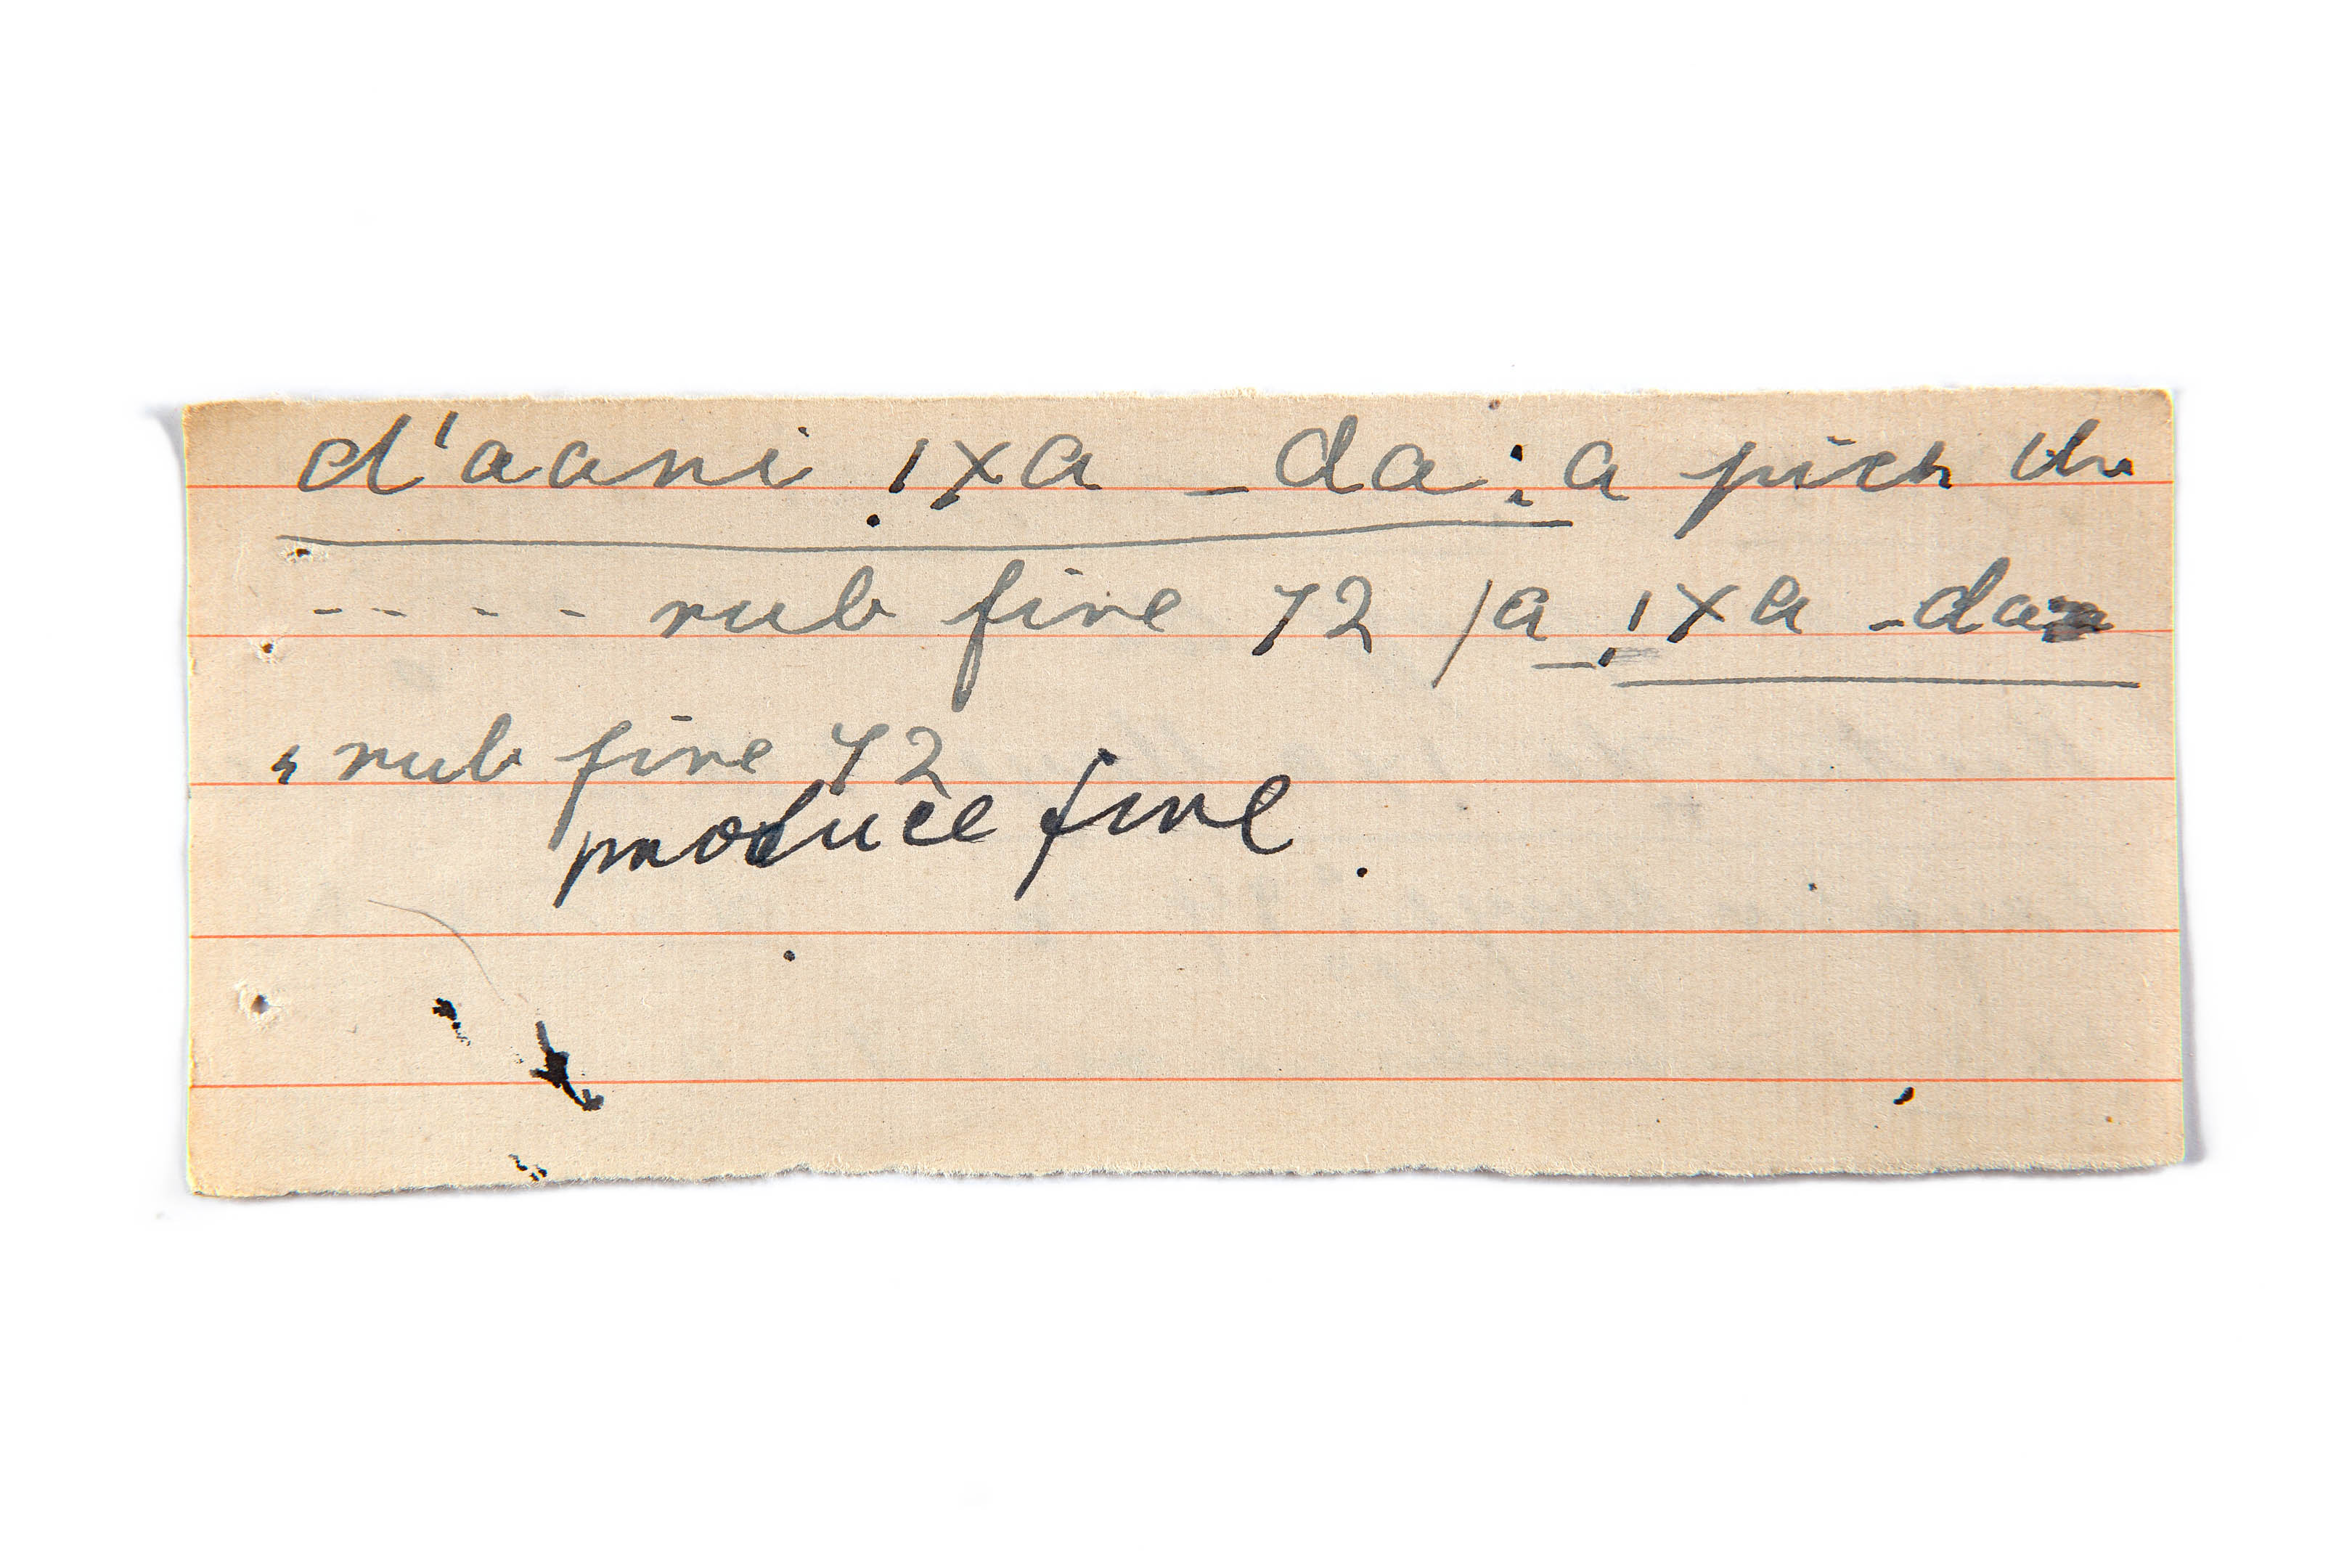 d'aani !xa _ da : a pick the
- - - - rub fire 72 /a !xa _da
, rub fire 72
produce fire .